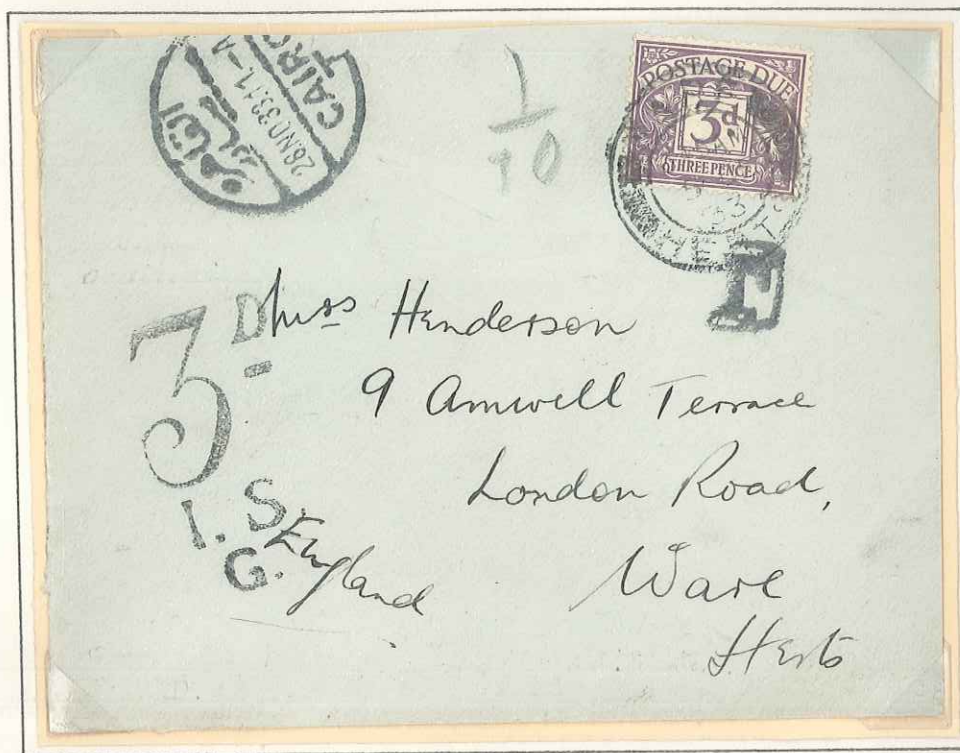 CAIRO
28 NO 33.11-A
القاهرة
1/10
POSTAGE DUE
3d
THREE PENCE
33
HERTS
T
3D
I.S.
G.
Miss Henderson
9 Amwell Terrace
London Road,
Ware
Herts
England